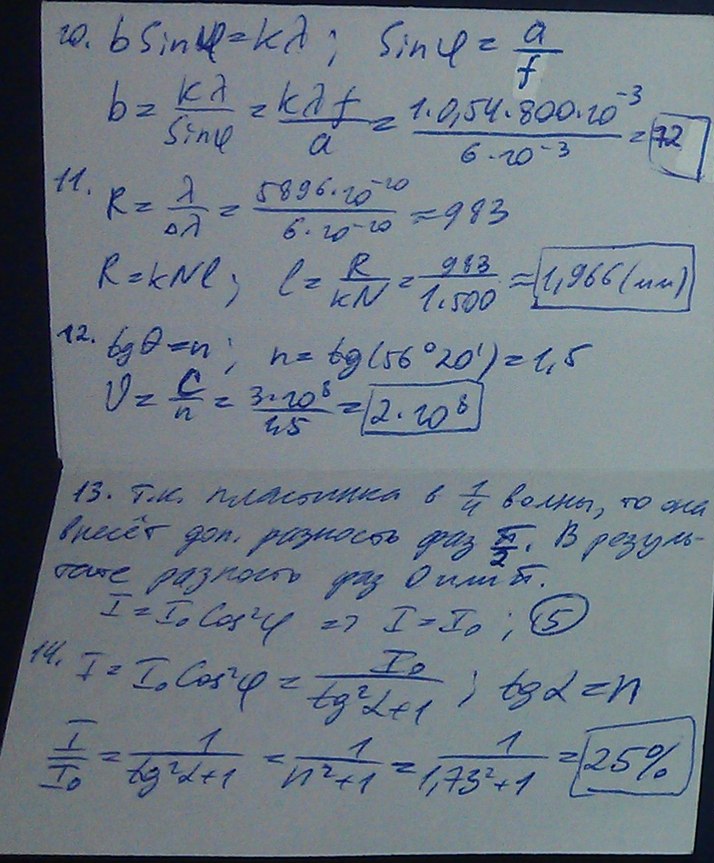 10. b Sinφ = kλ ; Sinφ = a/f
b = kλ/Sinφ = kλf/a = 1·0,54·800·10⁻³/6·10⁻³ = 72
11. R = λ/Δλ = 5896·10⁻¹⁰/6·10⁻¹⁰ = 983
R = kNl ; l = R/kN = 983/1·500 ≈ 1,966 (мм)
12. tgθ = n ; n = tg(56°20') = 1,5
υ = c/n = 3·10⁸/1,5 = 2·10⁸
13. т.к. пластинка в 1/4 волны, то она
внесёт доп. разность фаз π/2. В резуль-
тате разность фаз 0 или π.
I = I₀ Cos²φ => I = I₀ ; 5
14. I = I₀ Cos²φ = I₀/tg²α+1 ; tgα = n
I/I₀ = 1/tg²α+1 = 1/n²+1 = 1/1,73²+1 = 25%